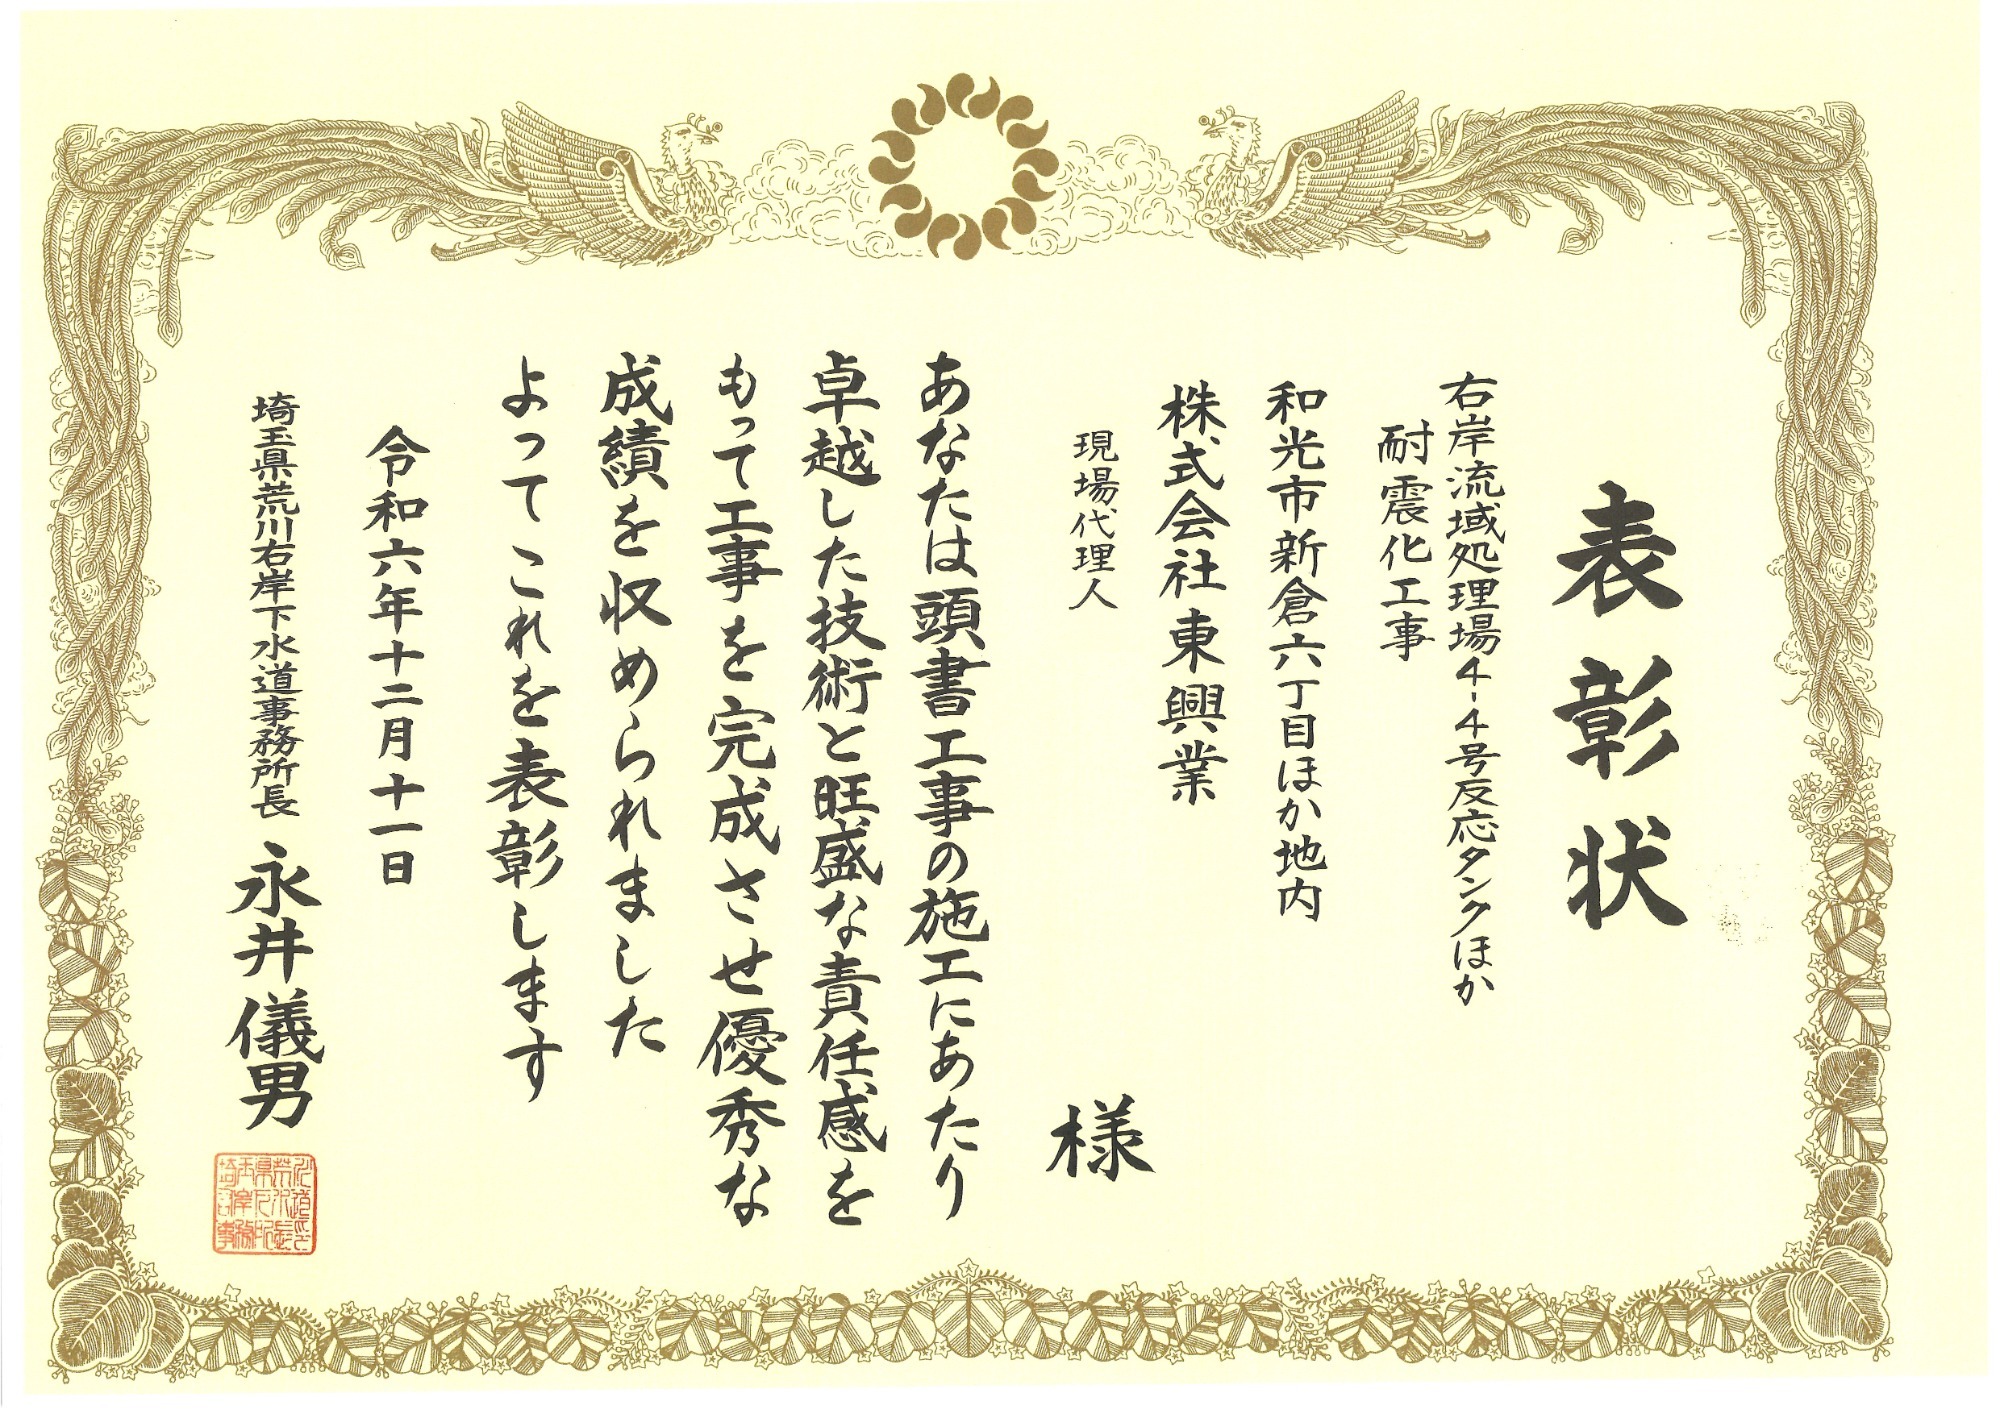 表彰状
右岸流域処理場4-4号反応タンクほか
耐震化工事
和光市新倉六丁目ほか地内
株式会社東興業
現場代理人
様
あなたは頭書工事の施工にあたり
卓越した技術と旺盛な責任感を
もって工事を完成させ優秀な
成績を収められました
よってこれを表彰します
令和六年十二月十一日
埼玉県荒川右岸下水道事務所長 永井儀男